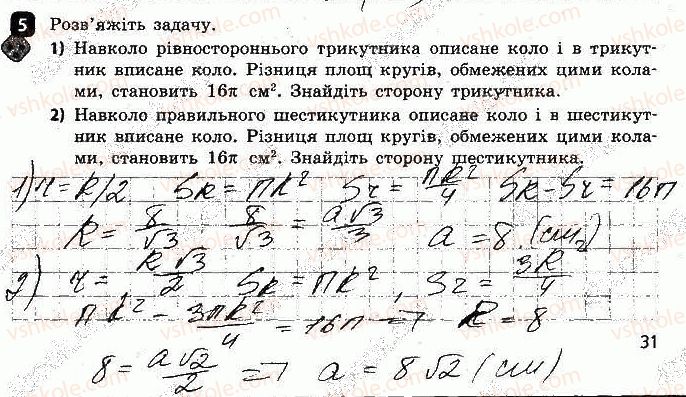 5 Розв'яжіть задачу.
1) Навколо рівностороннього трикутника описане коло і в трикут-
ник вписане коло. Різниця площ кругів, обмежених цими кола-
ми, становить 16π см². Знайдіть сторону трикутника.
2) Навколо правильного шестикутника описане коло і в шестикут-
ник вписане коло. Різниця площ кругів, обмежених цими кола-
ми, становить 16π см². Знайдіть сторону шестикутника.
1) r = R/2 SR = ПR² Sr = ПR²/4 SR - Sr = 16П
R = 8/√3 8/√3 = a√3/3 a = 8 (см)
2) r = R√3/2 SR = ПR², Sr = 3R/4
ПR² - 3ПR²/4 = 16П => R = 8
31
8 = a√2/2 => a = 8√2 (см)